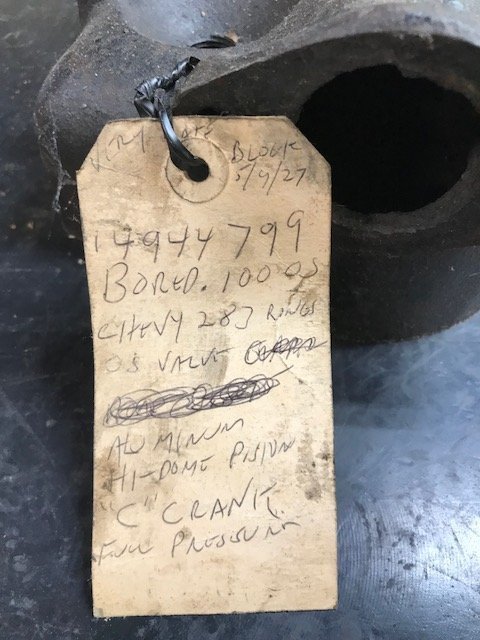 BLOCK
5/9/27
14944799
BORED .100 OS
CHEVY 283 RINGS
OS VALVE
ALUMINUM
HI-DOME PISTON
"C" CRANK
FULL PRESSURE